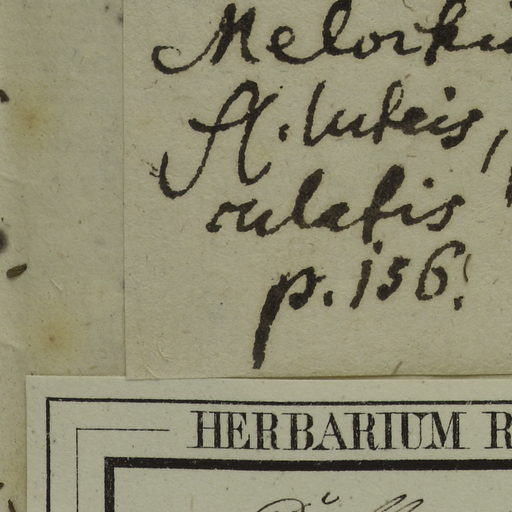 Melochi
fl. luteis,
rulatis
p. 156.
HERBARIUM R